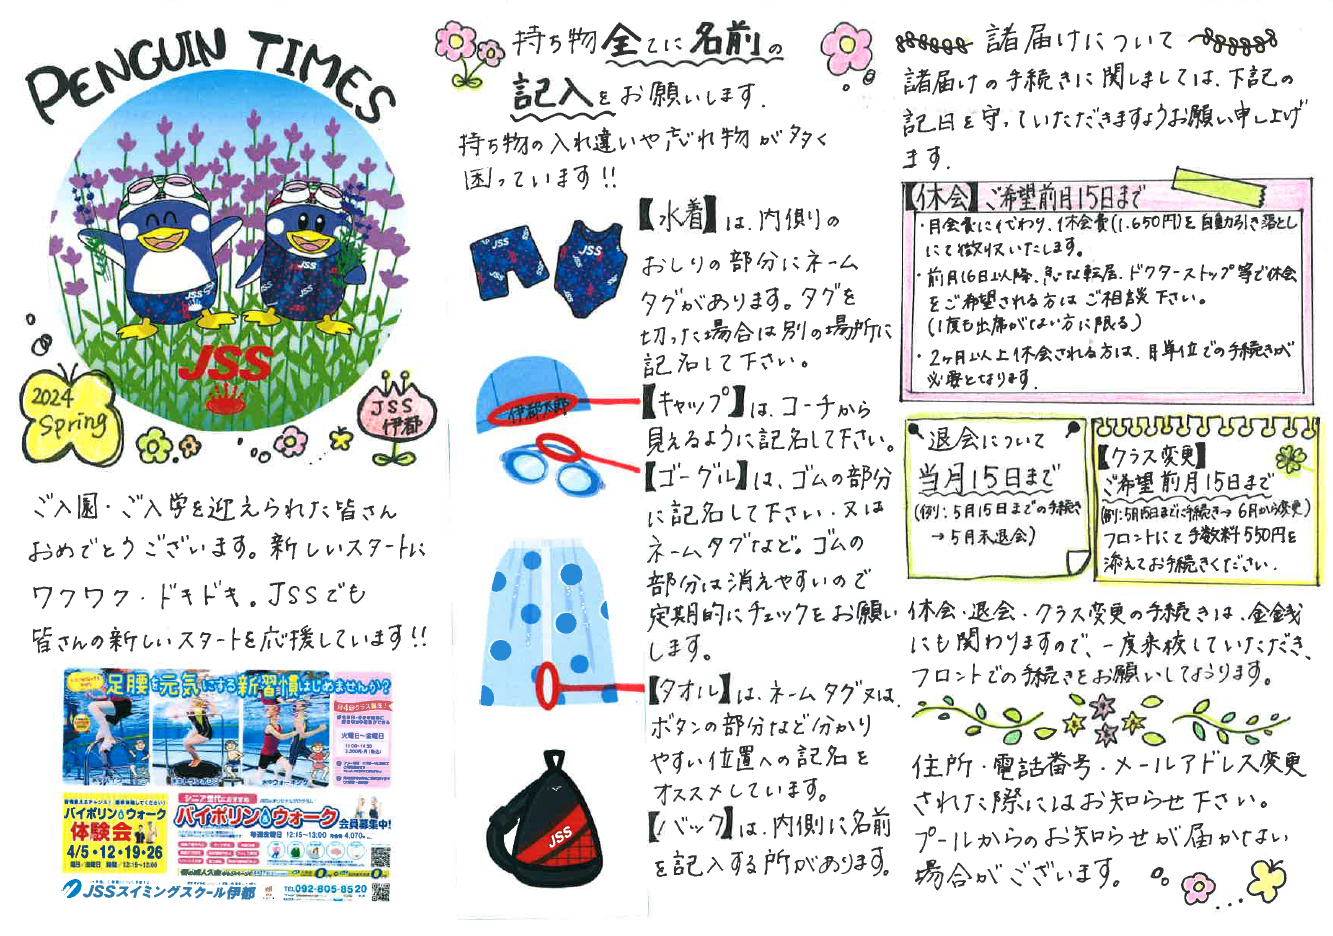 PENGUIN TIMES
JSS
JSS
JSS
2024
Spring
JSS
伊都
ご入園・ご入学を迎えられた皆さん
おめでとうございます。新しいスタートに
ワクワク・ドキドキ。JSSでも
皆さんの新しいスタートを応援しています!!
足腰も元気にする新習慣はじめませんか?
火曜日〜金曜日
バイポリン・ウォーク
体験会
4/5・12・19・26
シニア世代におすすめ
バイポリンウォーク
会員募集中!
毎週金曜日 12:15〜13:00
JSSスイミングスクール伊都
TEL 092-805-8520
持ち物全てに名前の
記入をお願いします.
持ち物の入れ違いや忘れ物が多く
困っています!!
JSS
JSS
【水着】は、内側の
おしりの部分にネーム
タグがあります。タグを
切った場合は別の場所に
記名して下さい。
伊都太郎
【キャップ】は、コーチから
見えるように記名して下さい。
【ゴーグル】は、ゴムの部分
に記名して下さい.又は
ネームタグなど。ゴムの
部分は消えやすいので
定期的にチェックをお願い
します。
【タオル】は、ネームタグ又は、
ボタンの部分など分かり
やすい位置への記名を
オススメしています。
JSS
【バック】は、内側に名前
を記入する所があります。
諸届けについて
諸届けの手続きに関しましては、下記の
記日を守っていただきますようお願い申し上げ
ます.
【休会】ご希望前月15日まで
・月会費に代わり、休会費(1.650円)を自動引き落とし
にて徴収いたします。
・前月16日以降、急な転居、ドクターストップ等で休会
をご希望される方はご相談下さい。
(1度も出席がない方に限る)
・2ヶ月以上休会される方は、月単位での手続きが
必要となります.
退会について
当月15日まで
(例:5月15日までの手続き
→5月末退会)
【クラス変更】
ご希望前月15日まで
(例:5月15日までに手続き→6月から変更)
フロントにて手数料550円を
添えてお手続きください.
休会・退会・クラス変更の手続きは、金銭
にも関わりますので、一度来校していただき、
フロントでの手続きをお願いしております。
住所・電話番号・メールアドレス変更
された際にはお知らせ下さい。
プールからのお知らせが届かない
場合がございます。